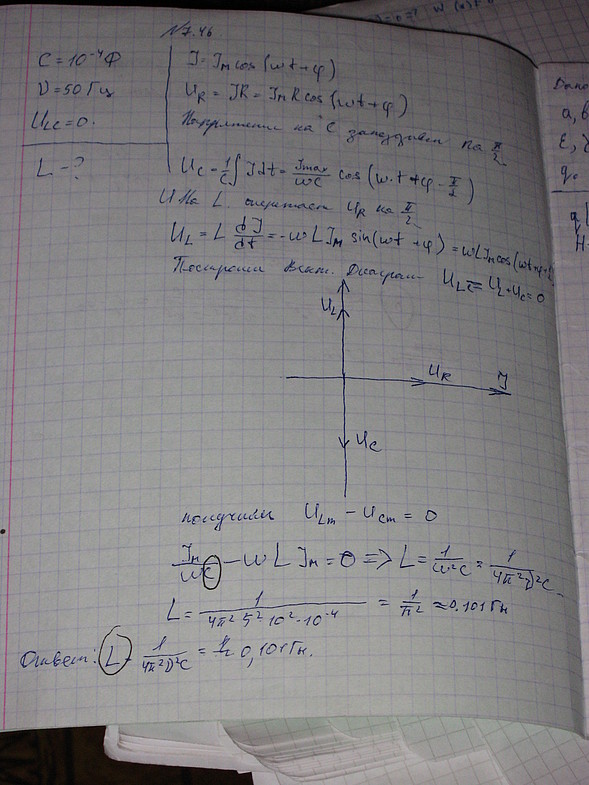 №7.46
C = 10⁻⁴ Ф
ν = 50 Гц
U_LC = 0.
L - ?
I = I_m cos(ωt + φ)
U_R = IR = I_m R cos(ωt + φ)
Напряжение на C запаздывает на π/2
U_C = 1/C ∫ I dt = I_max/ωC cos(ω·t + φ - π/2)
U на L опережает U_R на π/2
U_L = L dI/dt = -ωL I_m sin(ωt + φ) = ωL I_m cos(ωt + φ +
Построим Диаграм U_LC = U_L + U_C = 0
U_L
U_R
I
U_C
получили U_Lm - U_Cm = 0
I_m/ωC - ωL I_m = 0 => L = 1/ω²C = 1/4π²ν²C
L = 1/4π² 5² 10² · 10⁻⁴ = 1/π² ≈ 0.101 Гн
Ответ: L = 1/4π²ν²C = 0,101 Гн.
Дано
a, b
q.
q
H